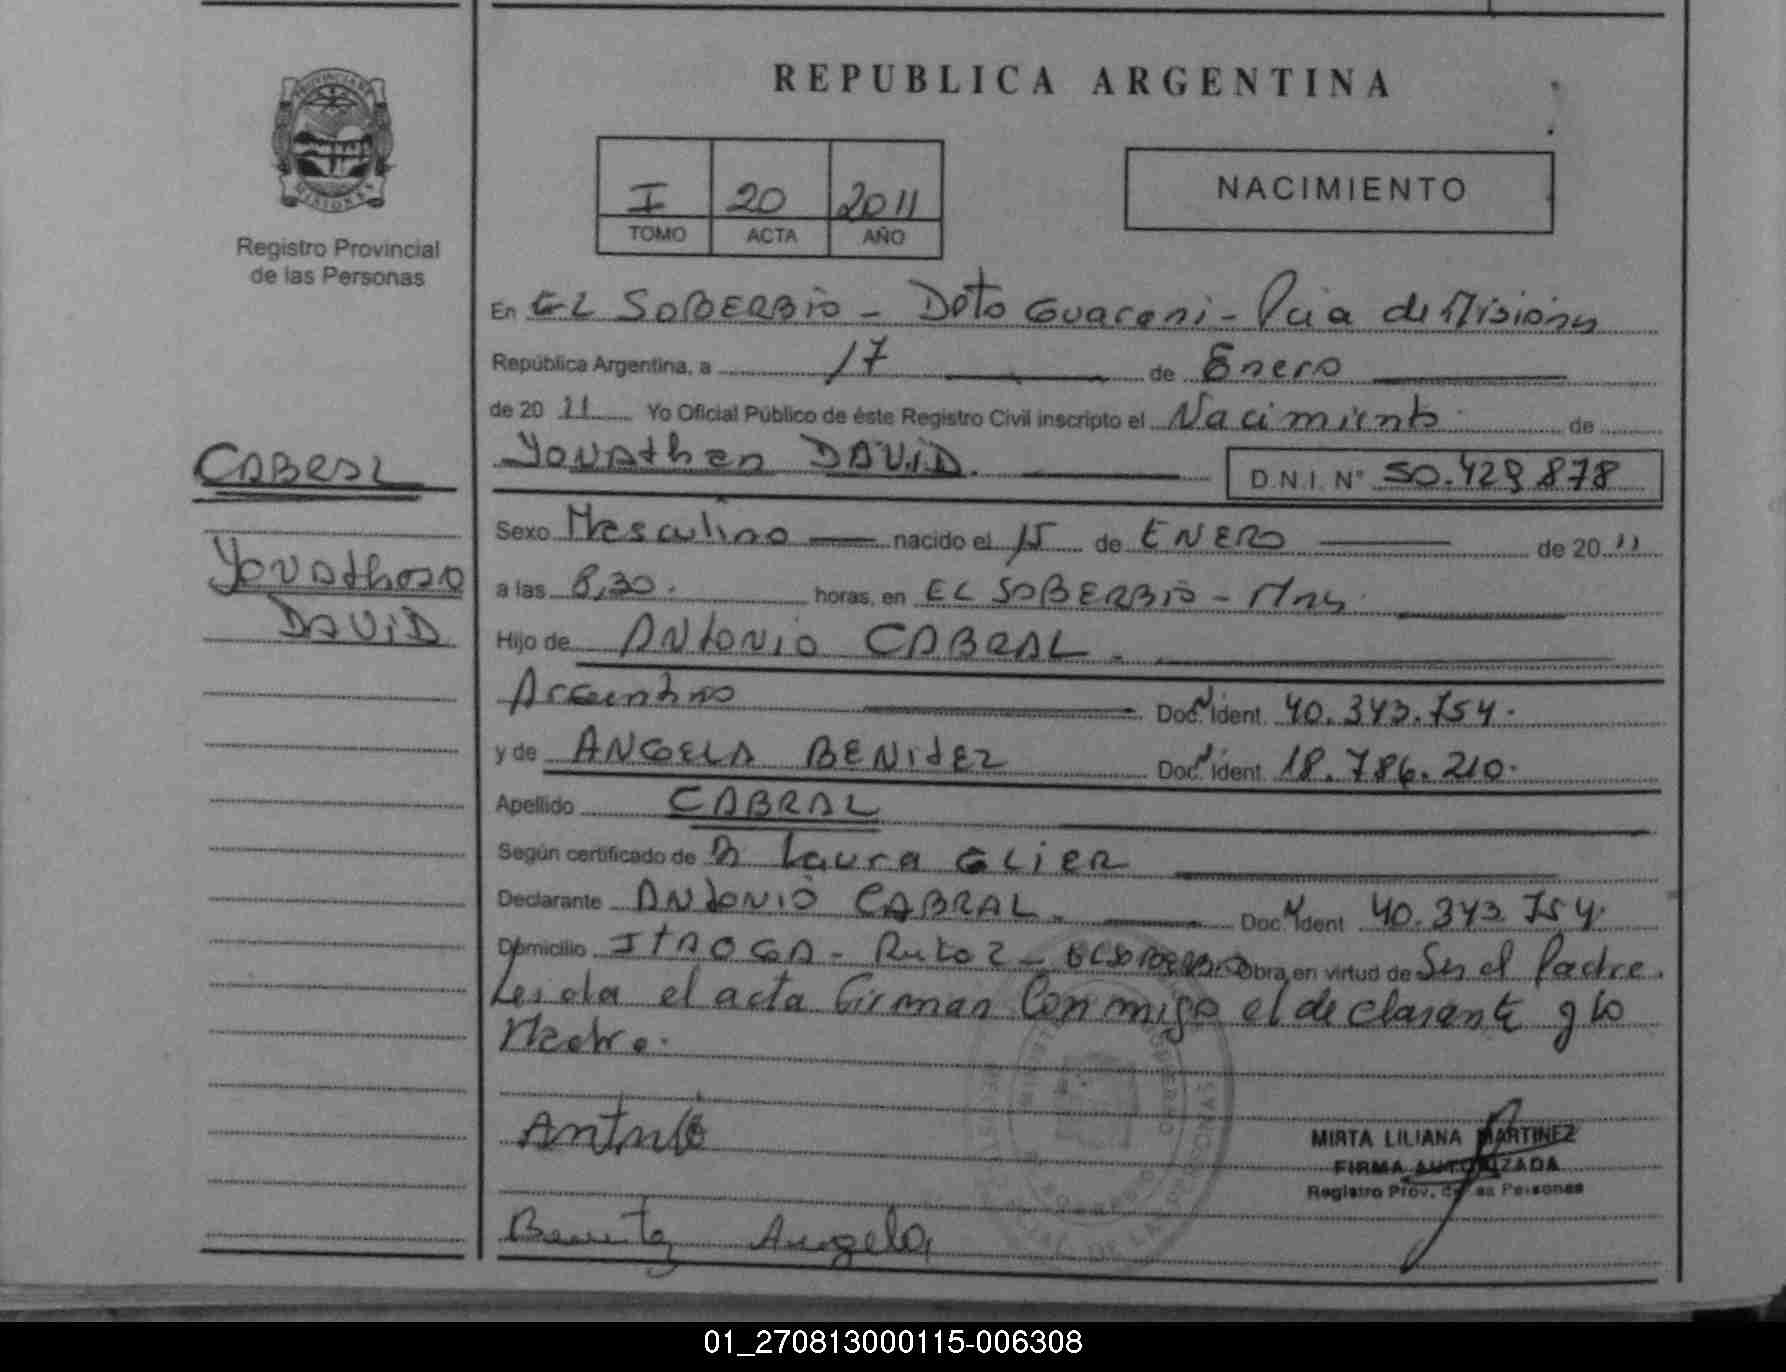 REPUBLICA ARGENTINA
PROVINCIA DE
MISIONES
Registro Provincial
de las Personas
I 20 2011
TOMO ACTA AÑO
NACIMIENTO
En EL SOBERBIO - Dpto Guarani - Pcia de Misiones
República Argentina, a 17 de Enero
de 20 11 Yo Oficial Público de éste Registro Civil inscripto el Nacimiento de
Yonathan DAVID. D.N.I. N° 50.429.878
CABRAL
Yonathan
DAVID
Sexo Masculino nacido el 15 de ENERO de 20 11
a las 8,30. horas, en EL SOBERBIO - Mns.
Hijo de ANTONIO CABRAL.
Argentino Doc. Ident. 40.343.754.
y de ANGELA BENITEZ Doc. Ident. 18.786.210.
Apellido CABRAL
Según certificado de Laura GLIER
Declarante ANTONIO CABRAL. Doc. Ident. 40.343.754.
Domicilio ITAOCA - Ruta 2 - EL SOBERBIO Obra en virtud de Ser el Padre.
Leida el acta firman Conmigo el declarante y la
Madre.
Antonio
MIRTA LILIANA MARTINEZ
FIRMA AUTORIZADA
Registro Prov. de las Personas
Benitez Angela
01_270813000115-006308